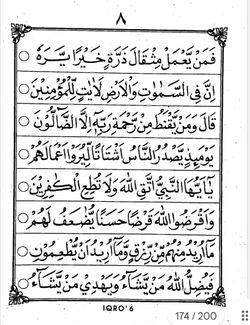 ٨
فَمَنْ يَّعْمَلْ مِثْقَالَ ذَرَّةٍ خَيْرًا يَّرَهٗ
اِنَّ فِى السَّمٰوٰتِ وَالْاَرْضِ لَاٰيٰتٍ لِّلْمُؤْمِنِيْنَ
قَالَ وَمَنْ يَّقْنَطُ مِنْ رَّحْمَةِ رَبِّهٖ اِلَّا الضَّآلُّوْنَ
يَوْمَئِذٍ يَّصْدُرُ النَّاسُ اَشْتَاتًا لِّيُرَوْا اَعْمَالَهُمْ
يٰٓاَيُّهَا النَّبِيُّ اتَّقِ اللّٰهَ وَلَا تُطِعِ الْكٰفِرِيْنَ
وَاَقْرَضُوا اللّٰهَ قَرْضًا حَسَنًا يُّضٰعَفُ لَهُمْ
مَآ اُرِيْدُ مِنْهُمْ مِّنْ رِّزْقٍ وَّمَآ اُرِيْدُ اَنْ يُّطْعِمُوْنِ
فَيُضِلُّ اللّٰهُ مَنْ يَّشَآءُ وَيَهْدِيْ مَنْ يَّشَآءُ
IQRO' 6
174 / 200